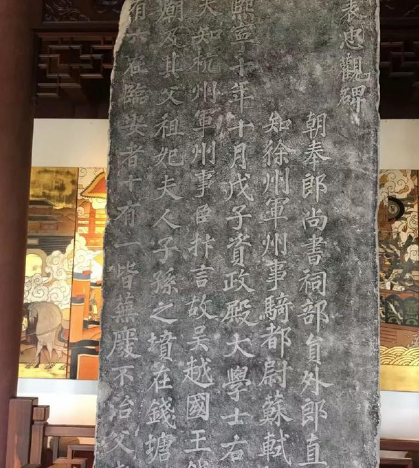 表忠觀碑
朝奉郎尚書祠部員外郎直
知徐州軍州事騎都尉蘇軾
熙寧十年十月戊子資政殿大學士右
夫知杭州軍州事臣抃言故吳越國王錢
廟及其父祖妃夫人子孫之墳在錢塘
有六在臨安者十有一皆蕪廢不治父